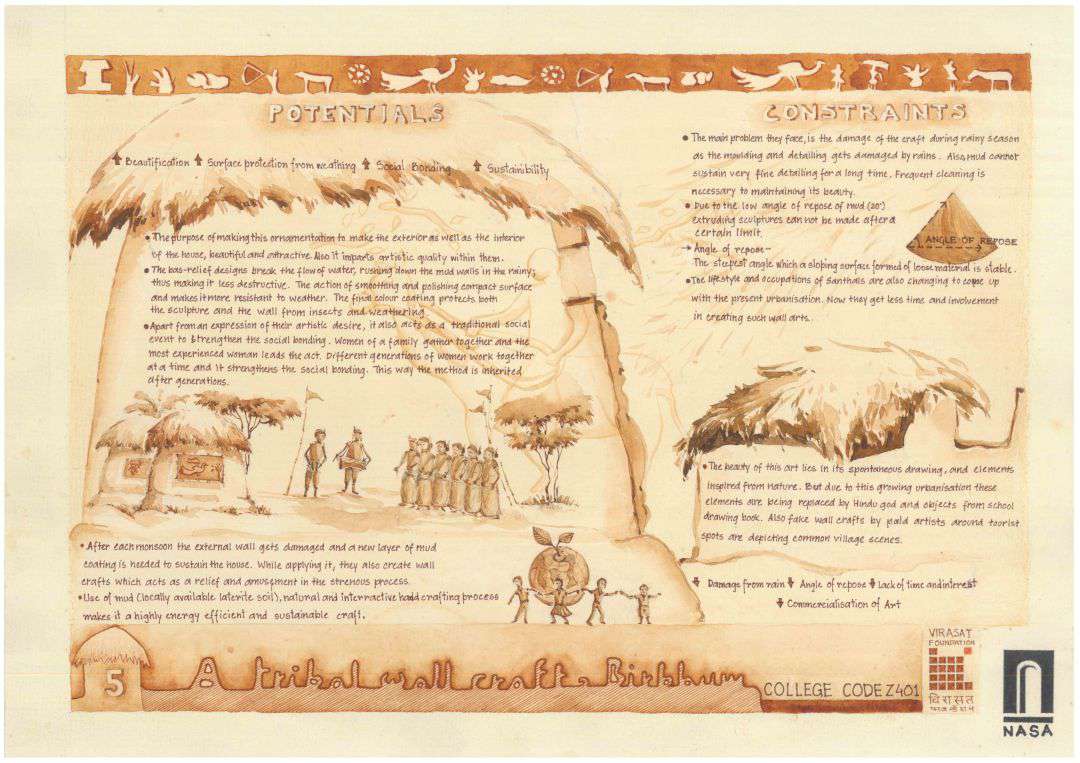 POTENTIALS
Beautification Surface protection from weathing Social Bonding Sustainibility
• The purpose of making this ornamentation to make the exterior as well as the interior
of the house, beautiful and attractive. Also it imparts artistic quality within them.
• The bas-relief designs break the flow of water, rushing down the mud walls in the rainy;
thus making it less destructive. The action of smoothing and polishing compact surface
and makes it more resistant to weather. The final colour coating protects both
the sculpture and the wall from insects and weathering
• Apart from an expression of their artistic desire, it also acts as a traditional social
event to strengthen the social bonding. Women of a family gather together and the
most experienced woman leads the act. Different generations of women work together
at a time and it strengthens the social bonding. This way the method is inherited
after generations.
• After each monsoon the external wall gets damaged and a new layer of mud
coating is needed to sustain the house. While applying it, they also create wall
crafts which acts as a relief and amusement in the strenous process.
• Use of mud (locally available laterite soil), natural and interractive hand crafting process
makes it a highly energy efficient and sustainable craft.
CONSTRAINTS
• The main problem they face, is the damage of the craft during rainy season
as the moulding and detailing gets damaged by rains. Also mud cannot
sustain very fine detailing for a long time. Frequent cleaning is
necessary to maintaining its beauty.
• Due to the low angle of repose of mud (20°)
extruding sculptures can not be made after a
certain limit.
→ Angle of repose-
The steepest angle which a sloping surface formed of loose material is stable.
ANGLE OF REPOSE
• The lifestyle and occupations of Santhals are also changing to cope up
with the present urbanisation. Now they get less time and involvement
in creating such wall arts.
• The beauty of this art lies in its spontaneous drawing, and elements
inspired from nature. But due to this growing urbanisation these
elements are being replaced by Hindu god and objects from school
drawing book. Also fake wall crafts by paid artists around tourist
spots are depicting common village scenes.
Damage from rain Angle of repose Lack of time and interest
Commercialisation of Art
5
A tribal wall craft, Birbhum
COLLEGE CODE Z401
VIRASAT
FOUNDATION
विरासत
फाउंडेशन
NASA